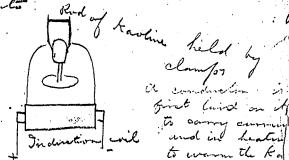 Rod of Kaoline
held by
clamps
it conduction is
first laid on it
to carry current
and in heating
to warm the Ka
Induction coil